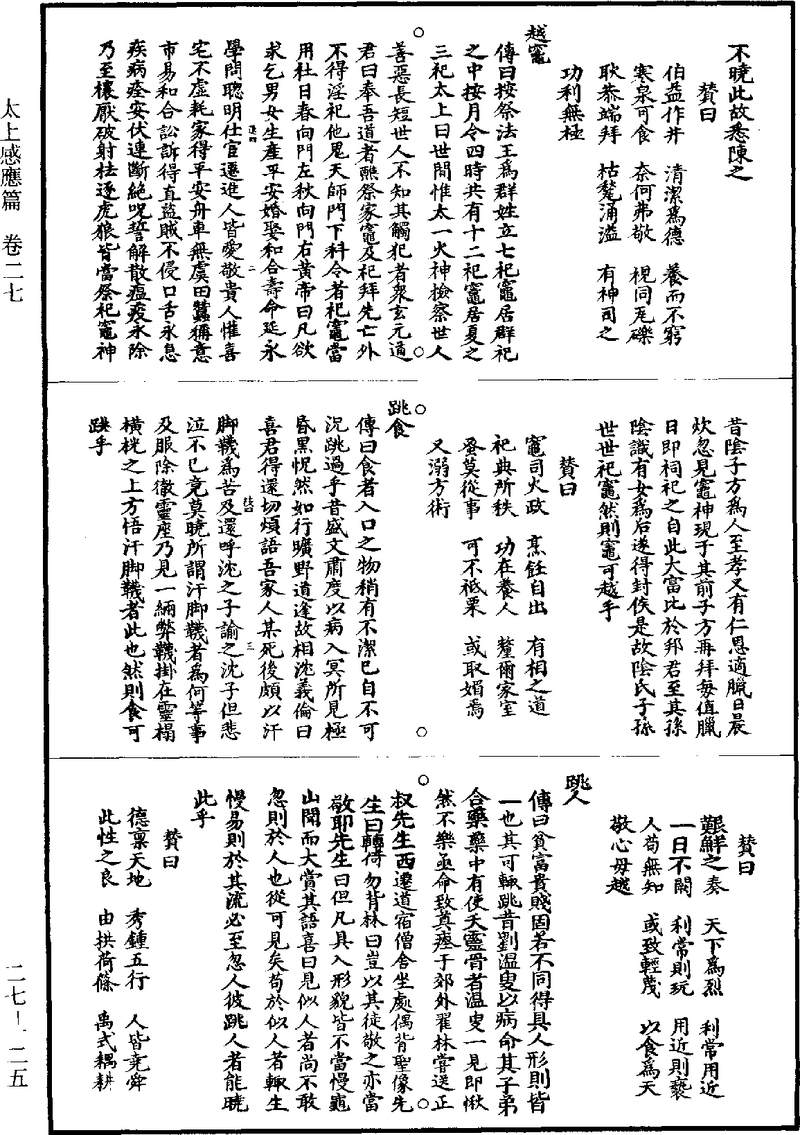 不曉此故悉陳之
贊曰
伯益作井　清潔爲德　養而不窮
寒泉可食　奈何弗敬　視同瓦礫
耿恭端拜　枯甃涌溢　有神司之
功利無極
越竈
傳曰按祭法王爲群姓立七祀竈居群祀
之中按月令四時共有十二祀竈居夏之
三祀太上曰世間惟太一火神撿察世人
善惡長短世人不知其觸犯者衆玄元道
君曰奉吾道者㷩祭家竈及祀拜先亡外
不得淫祀他鬼天師門下科令者祀竈當
用社日春向門左秋向門右黄帝曰凡欲
求乞男女生產平安婚娶和合壽命延永
學問聰明仕宦遷進人皆愛敬貴人懽喜
宅不虚耗家得平安舟車無虞田蠶稱意
市易和合訟訴得直盗賊不侵口舌永息
疾病痊安伏連斷絶呪誓解散瘟疫永除
乃至禳厭破射祛逐虎狼皆當祭祀竈神
昔陰子方爲人至孝又有仁恩適臘日晨
炊忽見竈神現于其前子方再拜每值臘
日即祠祀之自此大富比於邦君至其孫
陰識有女爲后遂得封侯是故陰氏子孫
世世祀竈然則竈可越乎
贊曰
竈司火政　烹飪自出　有相之道
祀典所秩　功在養人　釐爾家室
蚤莫從事　可不祗栗　或取媚焉
又溺方術
跳食
傳曰食者入口之物稍有不潔已自不可
況跳過乎昔盛文肅度以病入冥所見極
昏黑怳然如行曠野道逢故相沈義倫曰
喜君得還切煩語吾家人某死後頗以汗
脚韈爲苦及還呼沈之子諭之沈子但悲
泣不已竟莫曉所謂汗脚韈者爲何等事
及服除徹靈座乃見一緉弊韈掛在靈榻
橫桄之上方悟汗脚韈者此也然則食可
跳乎
贊曰
艱鮮之奏　天下爲烈　利常用近
一日不闕　利常則玩　用近則褻
人苟無知　或致輕蔑　以食爲天
敬心毋越
跳人
傳曰貧富貴賤固若不同得具人形則皆
一也其可輒跳昔劉温叟以病命其子弟
合藥藥中有使天靈骨者温叟一見即愀
然不樂亟命致奠瘞于郊外翟林嘗送正
叔先生西遷道宿僧舍坐處偶背聖像先
生曰轉倚勿背林曰豈以其徒敬之亦當
敬耶先生曰但凡具入形貌皆不當慢龜
山聞而大當其語喜曰見似人者尚不敢
忽則於人也從可見矣苟於似人者輒生
慢易則於其流必至忽人彼跳人者能曉
此乎
贊曰
德稟天地　秀鍾五行　人皆堯舜
此性之良　由拱荷篠　禹式耦耕
太上感應篇　卷二七
二七－一二五